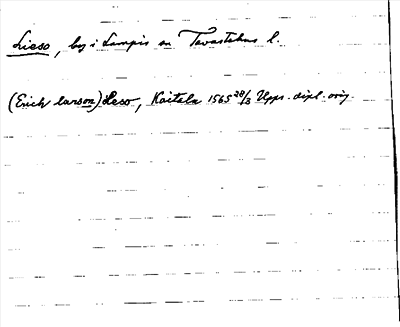 Lieso, by i Lampis sn Tavastehus l.
(Erich larson) Leso, Koitala 1565 28/3 Upps. dipl. orig.